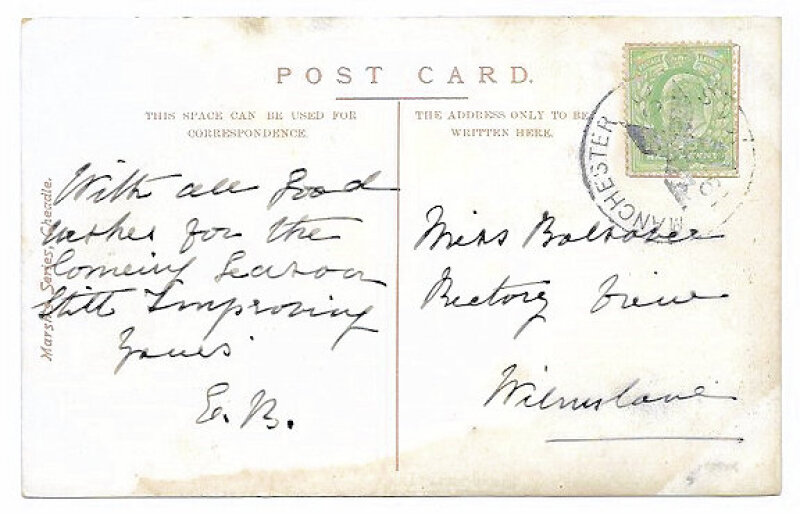 POST CARD.
THIS SPACE CAN BE USED FOR
CORRESPONDENCE.
THE ADDRESS ONLY TO BE
WRITTEN HERE.
With all good
wishes for the
Comeing Season
Still Improving
Yours
E. B.
Miss Bolsover
Rectory View
Wilmslowe
MANCHESTER
Marsh's Series, Cheadle.